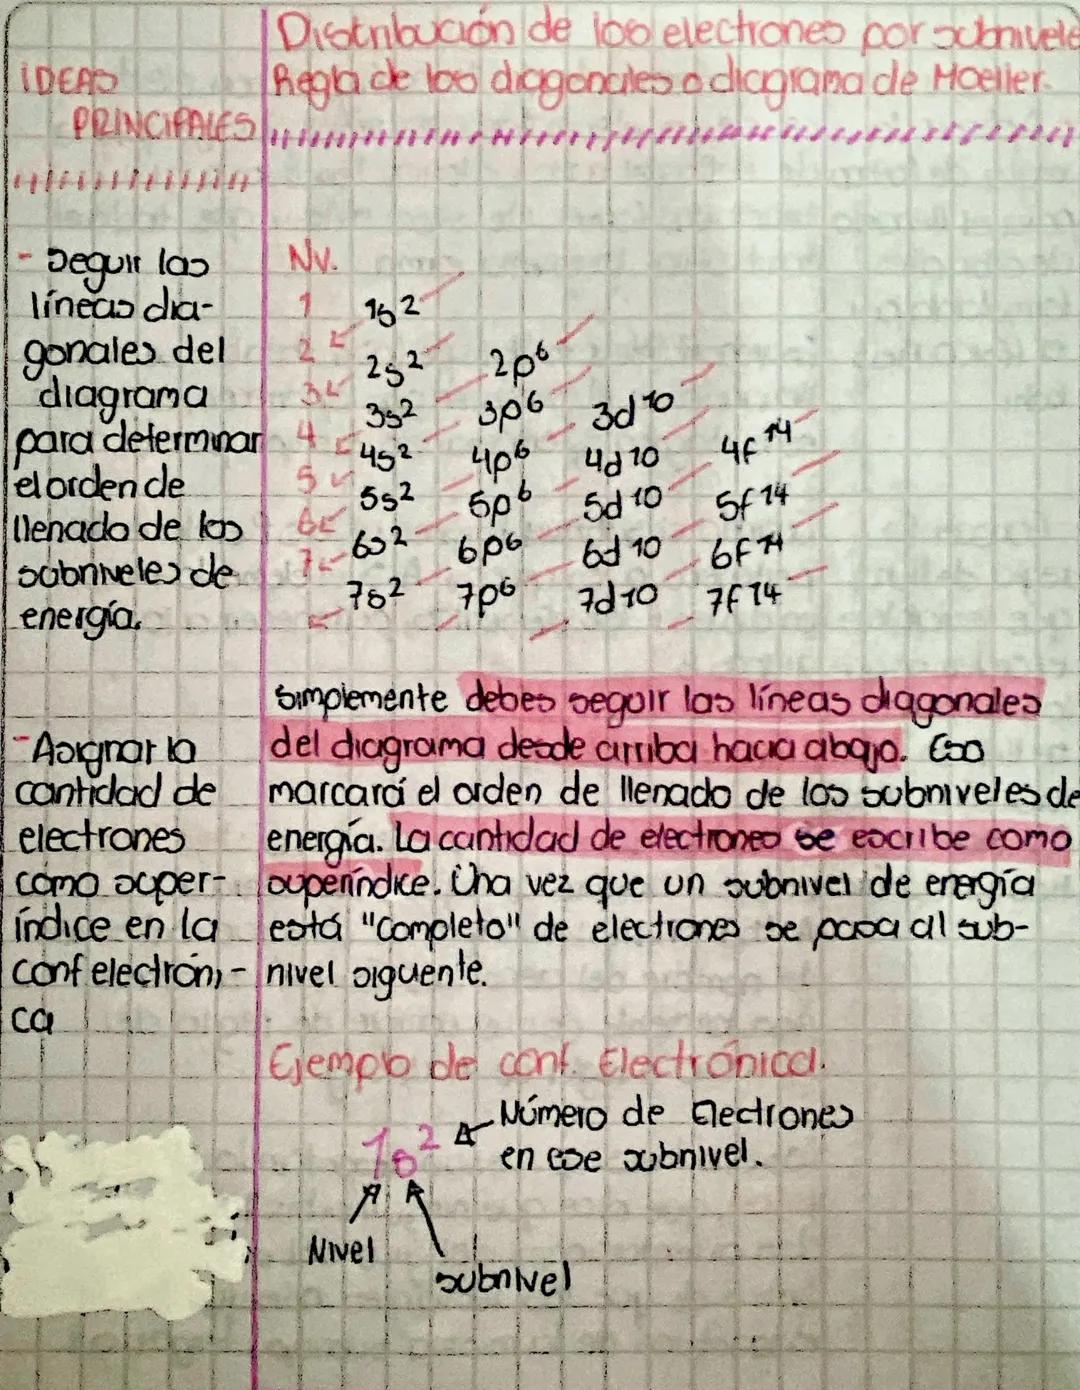 Distribución de los electrones por subnivele
Regla de las diagonales o diagrama de Moeller.
IDEAS
PRINCIPALES
- Seguir las
líneas dia-
gonales del
diagrama
para determinar
el orden de
llenado de los
subniveles de
energía.
Nv.
1 1s²
2 2s² 2p⁶
3 3s² 3p⁶ 3d¹⁰
4 4s² 4p⁶ 4d¹⁰ 4f¹⁴
5 5s² 5p⁶ 5d¹⁰ 5f¹⁴
6 6s² 6p⁶ 6d¹⁰ 6f¹⁴
7 7s² 7p⁶ 7d¹⁰ 7f¹⁴
- Asignar la
cantidad de
electrones
como super-
índice en la
conf electróni-
ca
Simplemente debes seguir las líneas diagonales
del diagrama desde arriba hacia abajo. Eso
marcará el orden de llenado de los subniveles de
energía. La cantidad de electrones se escribe como
superíndice. Una vez que un subnivel de energía
está "Completo" de electrones se pasa al sub-
nivel siguente.
Ejemplo de conf. Electrónica.
1s² Número de Electrones
en ese subnivel.
Nivel
subnivel